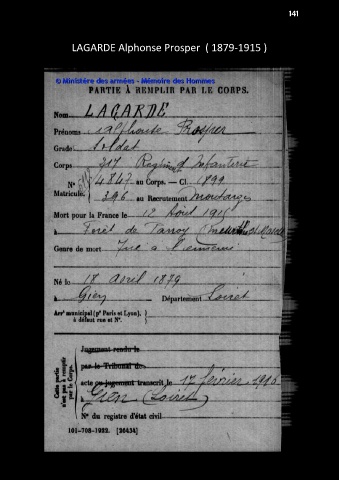 141
LAGARDE Alphonse Prosper ( 1879-1915 )
© Ministère des armées - Mémoire des Hommes
PARTIE À REMPLIR PAR LE CORPS.
Nom LAGARDE
Prénoms Alphonse Prosper
Grade Soldat
Corps 317 Régiment d'Infanterie
N° Matricule. 4847 au Corps. — Cl. 1899
396 au Recrutement Montargis
Mort pour la France le 12 Août 1915
à Forêt de Parroy
Genre de mort Tué à l'ennemi
Né le 18 Avril 1879
à Gien Département Loiret
Arrt municipal (pr Paris et Lyon), à défaut rue et N°.
Cette partie n'est pas à remplir par le Corps.
Jugement rendu le
par le Tribunal de
acte ou jugement transcrit le 17 février 1916
à Gien (Loiret)
N° du registre d'état civil
101-708-1922. [26434]